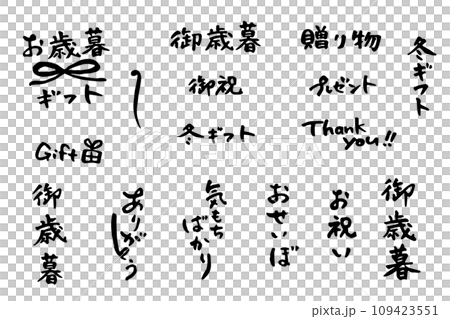 お歳暮
ギフト
御歳暮
贈り物
冬ギフト
御祝
プレゼント
冬ギフト
Thank
you!!
Gift
御歳暮
ありがとう
気もち
ばかり
おせいぼ
お祝い
御歳暮
109423551